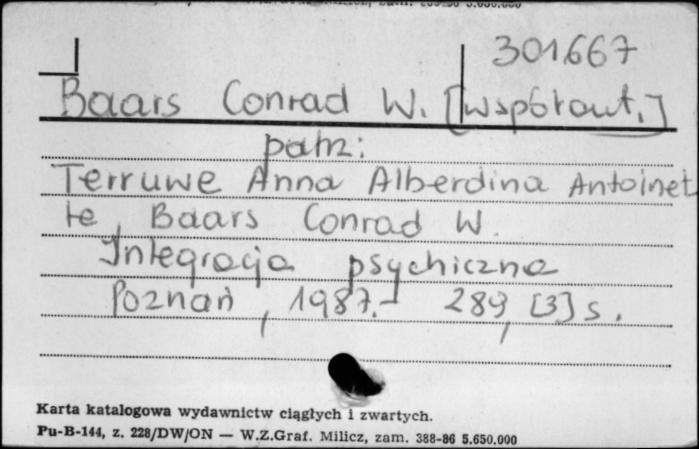 301667
Baars Conrad W. [współaut.]
patrz:
Terruwe Anna Alberdina Antoinet
te, Baars Conrad W.
Integracja psychiczna
Poznań, 1987.- 289, [3] s.
Karta katalogowa wydawnictw ciągłych i zwartych.
Pu-B-144, z. 228/DW/ON — W.Z.Graf. Milicz, zam. 388-86 5.650.000